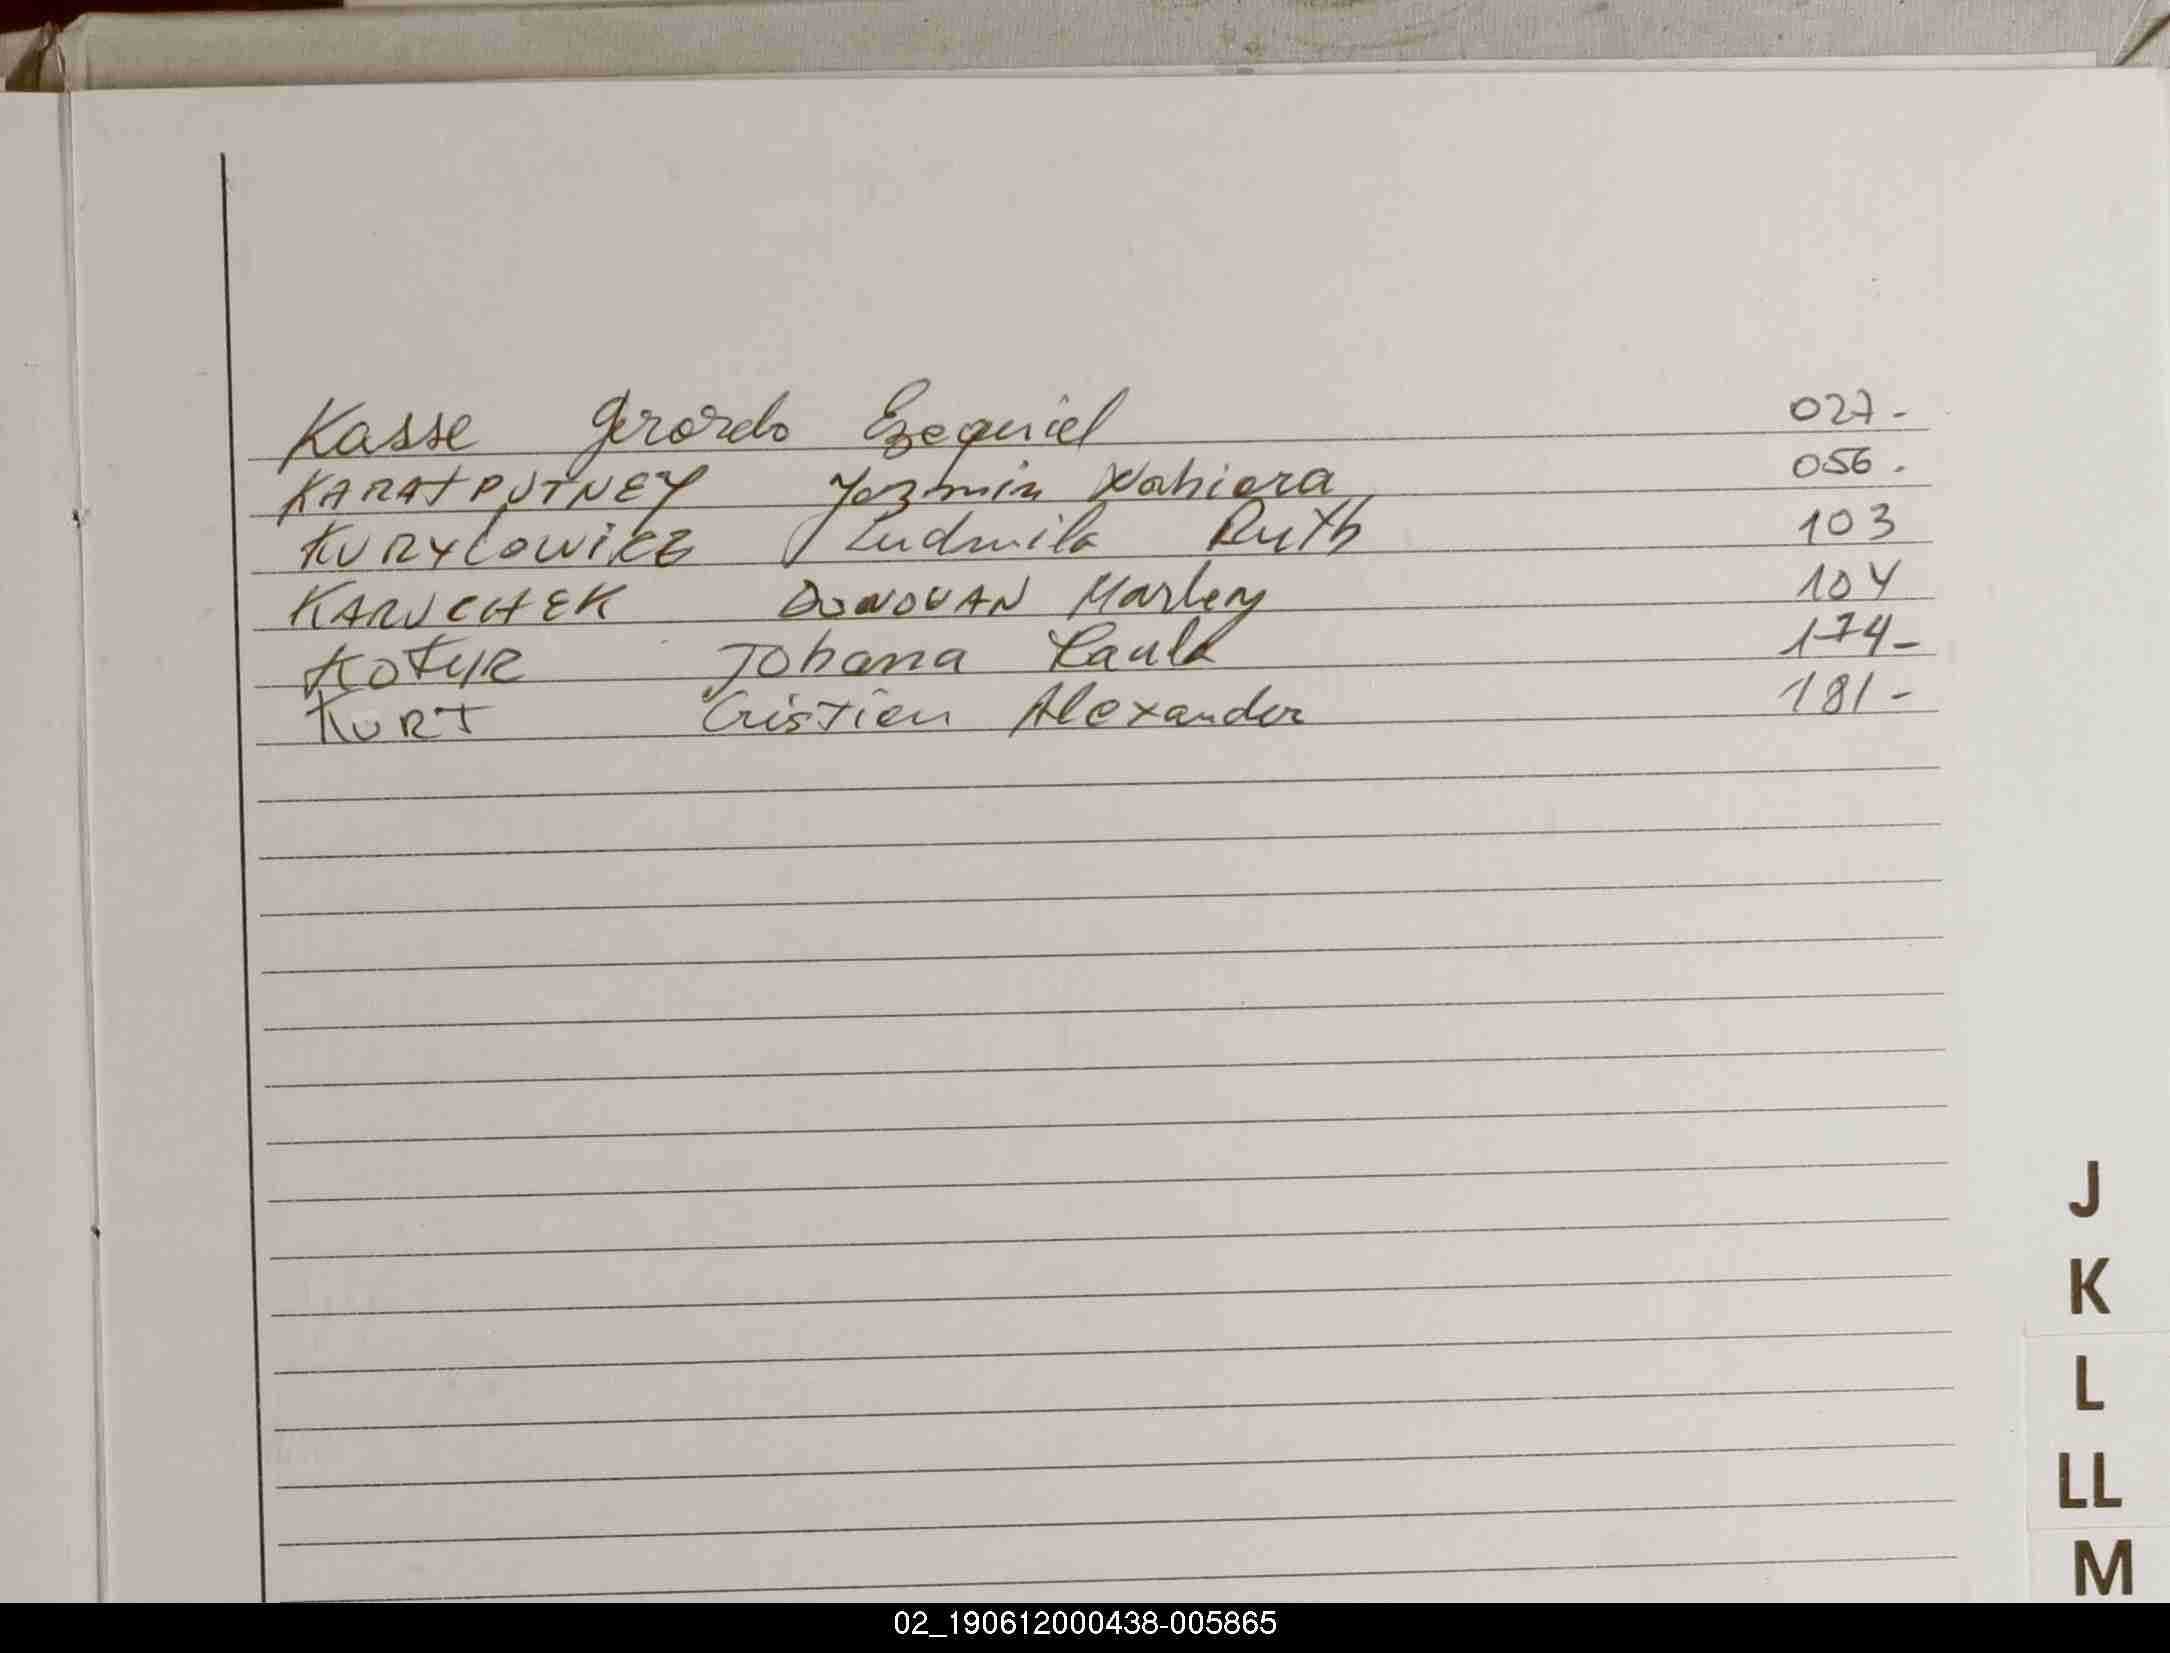 Kasse Gerardo Ezequiel 027-
KARATPUTNEY Yazmin Wahiara 056.
KURYLOWICZ Ludmila Ruth 103
KARUCHEK DONOVAN Marley 104
KOTYR Johana Paula 174-
KURT Cristien Alexander 181-
J
K
L
LL
M
02_190612000438-005865